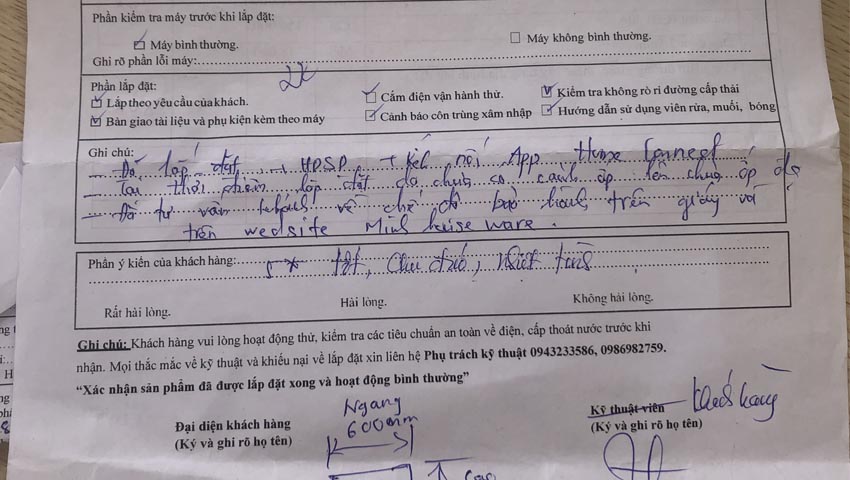 Phần kiểm tra máy trước khi lắp đặt:
Máy bình thường. Máy không bình thường.
Ghi rõ phần lỗi máy:
Phần lắp đặt:
Lắp theo yêu cầu của khách. Cắm điện vận hành thử. Kiểm tra không rò rỉ đường cấp thải
Bàn giao tài liệu và phụ kiện kèm theo máy Cảnh báo côn trùng xâm nhập Hướng dẫn sử dụng viên rửa, muối, bóng
Ghi chú:
- Đã lắp đặt HDSD + kết nối App Home Connect
- Tại thời điểm lắp đặt do chưa có cánh ốp lên chưa ốp đc
- Đã tư vấn khách về chế độ bảo hành trên giấy và
trên wedsite Minh house ware.
Phần ý kiến của khách hàng: 5* tốt, Chu đáo, nhiệt tình
Rất hài lòng. Hài lòng. Không hài lòng.
Ghi chú: Khách hàng vui lòng hoạt động thử, kiểm tra các tiêu chuẩn an toàn về điện, cấp thoát nước trước khi
nhận. Mọi thắc mắc về kỹ thuật và khiếu nại về lắp đặt xin liên hệ Phụ trách kỹ thuật 0943233586, 0986982759.
“Xác nhận sản phẩm đã được lắp đặt xong và hoạt động bình thường”
Đại diện khách hàng Ngang Kỹ thuật viên khách hàng
(Ký và ghi rõ họ tên) 600mm (Ký và ghi rõ họ tên)
cao